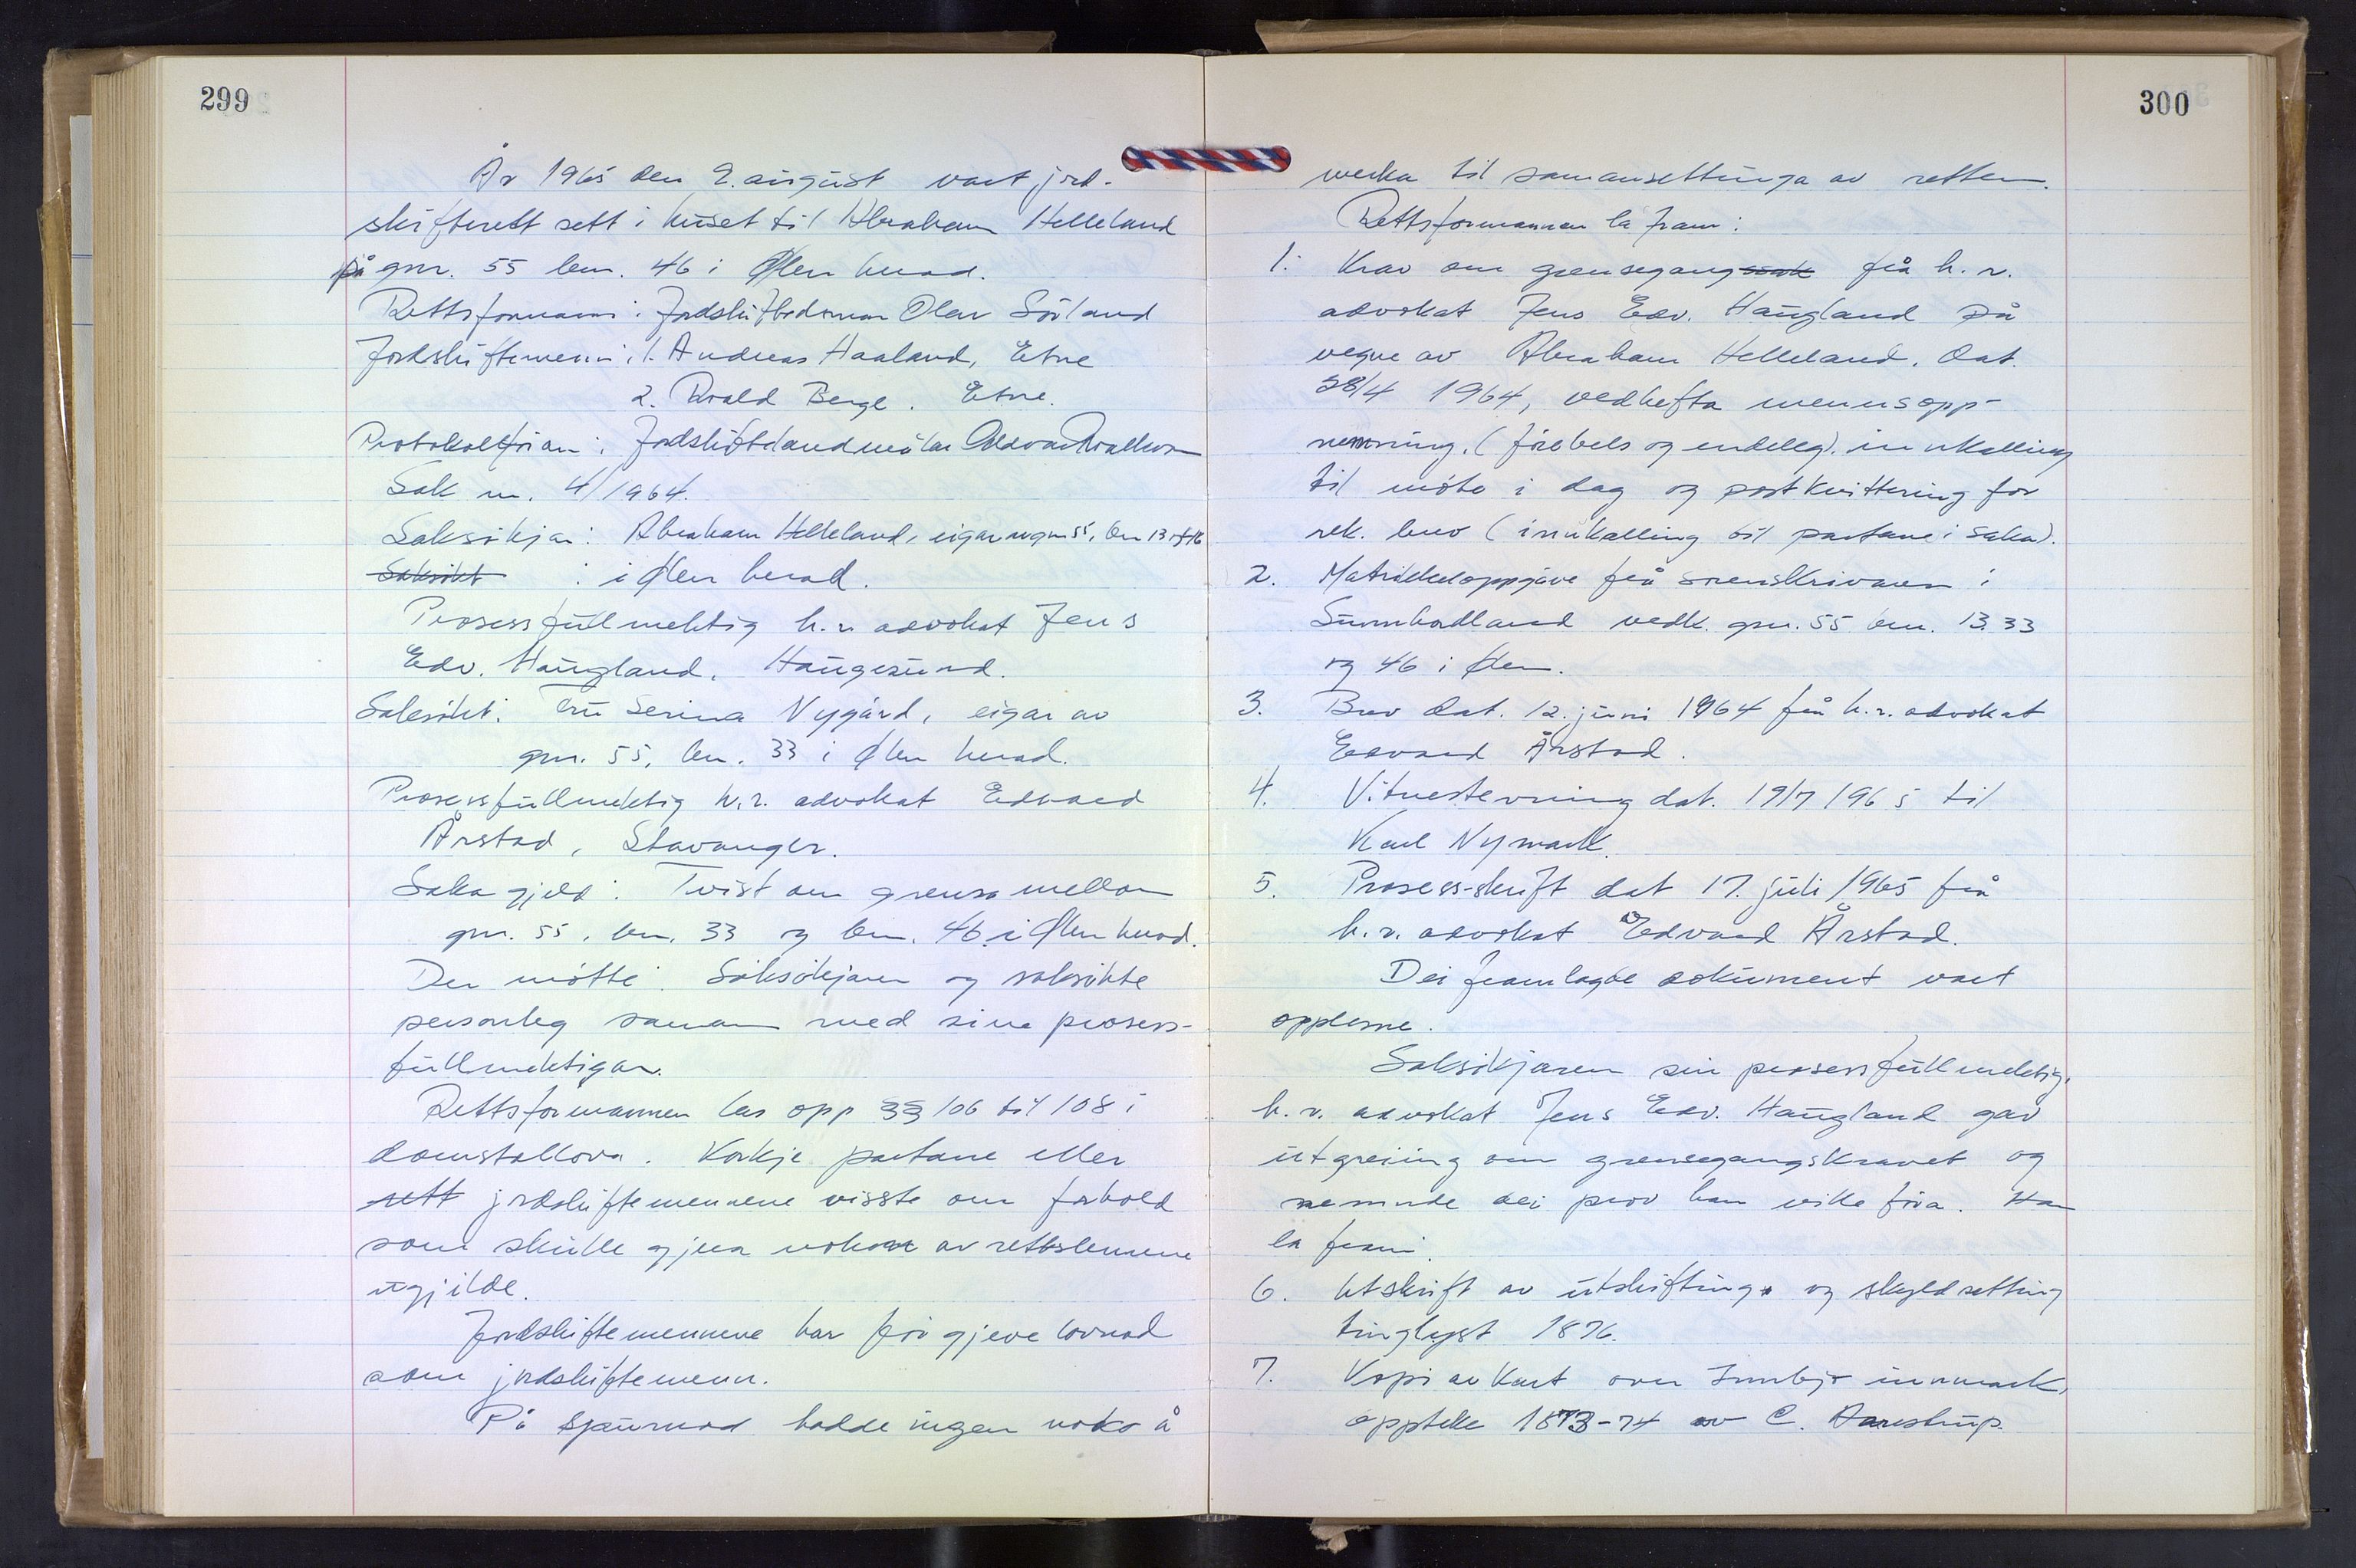 299
År 1965 den 2. august vart jord-
skifterett sett i huset til Abraham Helleland
på gnr. 55 bnr. 46 i Ølen herad.
Rettsformann: Jordskiftedomar Olav Sörland
Jordskiftemenn: 1. Andreas Haaland, Etne
2. Roald Berge. Etne.
Protokollførar: Jordskiftelandmålar
Sak nr. 4/1964.
Saksøkjar: Abraham Helleland, eigar av gnr 55, bnr 13 og 46
Saksøkt : i Ølen herad.
Prosessfullmektig h.r. advokat Jens
Edv. Haugland, Haugesund.
Saksøkt: Fru Serina Nygård, eigar av
gnr. 55, bnr. 33 i Ølen herad.
Prosessfullmektig h.r. advokat Edvard
Årstad, Stavanger.
Saka gjeld: Tvist om grensa mellom
gnr. 55, bnr. 33 og bnr. 46 i Ølen herad.
Der møtte: Saksøkjaren og saksøkte
personleg saman med sine prosess-
fullmektigar.
Rettsformannen las opp §§ 106 til 108 i
domstollova. Korkje partane eller
rett jordskiftemennene visste om forhold
som skulle gjera nokon av rettslemene
ugjilde.
Jordskiftemennene har før gjeve lovnad
som jordskiftemenn.
På spurnad hadde ingen noko å
300
merka til samansettinga av retten.
Rettsformannen la fram:
1. Krav om grensegangssak frå h.r.
advokat Jens Edv. Haugland på
vegne av Abraham Helleland. Dat.
28/4 1964, vedhefta menns opp-
nemning, (førebels og endeleg), innkalling
til møte i dag og postkvittering for
rek. brev (innkalling til partane i saka).
2. Matrikkeloppgåve frå sorenskrivaren i
Sunnhordland vedk. gnr. 55 bnr. 13. 33
og 46 i Ølen.
3. Brev dat. 12. juni 1964 frå h.r. advokat
Edvard Årstad.
4. Vitnestevning dat. 19/7 1965 til
Karl Nymark.
5. Prosess-skrift dat 17. juli 1965 frå
h.r. advokat Edvard Årstad.
Dei framlagde dokument vart
opplesne.
Saksøkjaren sin prosessfullmektig,
h.r. advokat Jens Edv. Haugland gav
utgreiing om grensegangskravet og
nemnde dei prov han ville føra. Han
la fram:
6. Utskrift av utskifting og skyldsetting
tinglyst 1876.
7. Kopi av kart over innmark,
oppteke 1873-74 av C. Aarestrup.